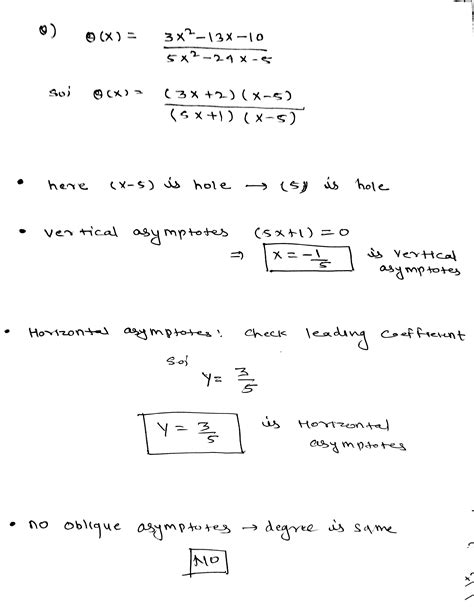 Q) Q(x) = 3x²-13x-10 / 5x²-24x-5
Soi Q(x) = (3x+2)(x-5) / (5x+1)(x-5)
• here (x-5) is hole → (5) is hole
• vertical asymptotes (5x+1) = 0
⇒ x = -1/5 is vertical
asymptotes
• Horizontal asymptotes: check leading coefficient
Soi
Y = 3/5
Y = 3/5 is Horizontal
asymptotes
• no oblique asymptotes → degree is same
NO